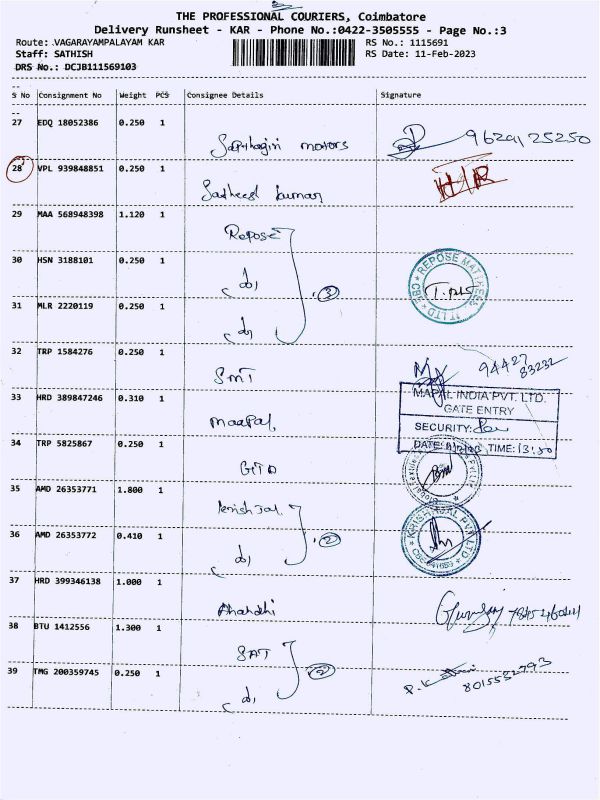 THE PROFESSIONAL COURIERS, Coimbatore
Delivery Runsheet - KAR - Phone No.:0422-3505555 - Page No.:3
Route: VAGARAYAMPALAYAM KAR RS No.: 1115691
Staff: SATHISH RS Date: 11-Feb-2023
DRS No.: DCJB111569103
S No Consignment No Weight PCS Consignee Details Signature
27 EDQ 18052386 0.250 1 motors 9629125250
28 VPL 939848851 0.250 1 Satheesh kumar H/R
29 MAA 568948398 1.120 1 Repose
30 HSN 3188101 0.250 1 do, 3 REPOSE MATTRESS
31 MLR 2220119 0.250 1 do,
32 TRP 1584276 0.250 1 SMT 94427 83232
33 HRD 389847246 0.310 1 maapal, MAPAL INDIA PVT. LTD.
GATE ENTRY
SECURITY:
DATE: TIME: 13:50
34 TRP 5825867 0.250 1 GITD
35 AMD 26353771 1.800 1
36 AMD 26353772 0.410 1 do, 2
37 HRD 399346138 1.000 1
38 BTU 1412556 1.300 1 SAT
39 TMG 200359745 0.250 1 do, 2 P.K 8015532793